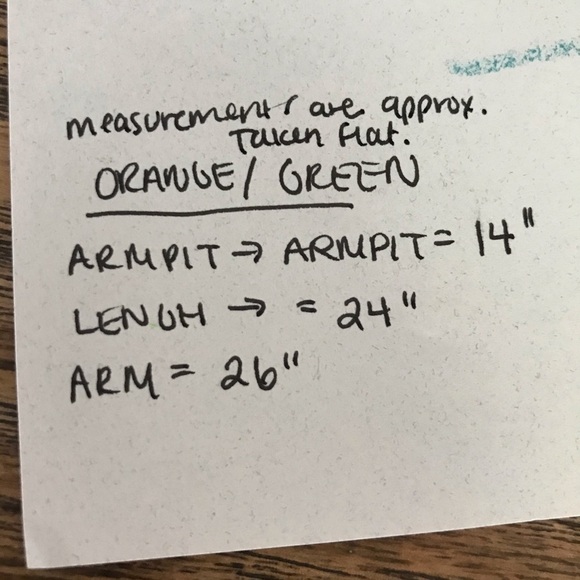 measurements are approx.
Taken flat.
ORANGE/ GREEN
ARMPIT → ARMPIT = 14"
LENGH → = 24"
ARM = 26"